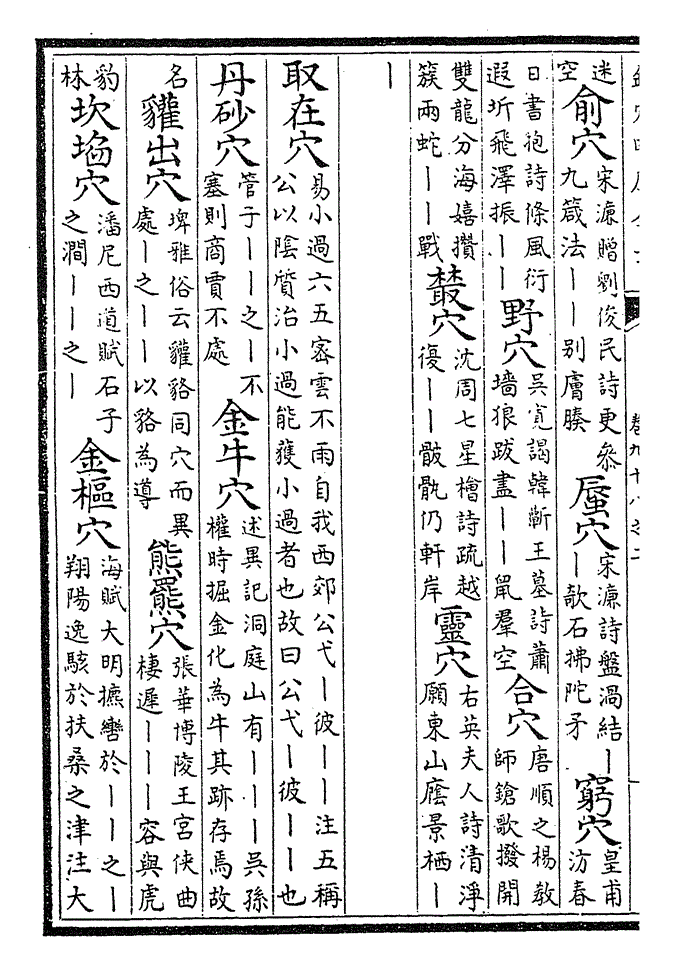 卷九十八之二
迷空俞穴宋濂贈劉俊民詩更參九箴法丨丨别膚腠蜃穴宋濂詩盤渦結丨丨欹石拂陀矛窮穴皇甫汸春
日書抱詩條風衍遐圻飛澤振丨丨野穴吳寛謁韓蘄王墓詩蕭墻狼跋盡丨丨鼠羣空合穴唐順之楊教師鎗歌撥開
雙龍分海嬉攢簇兩蛇丨丨戰藂穴沈周七星檜詩疏越復丨丨骸骩仍軒岸靈穴右英夫人詩清淨願東山廕景栖丨
丨
取在穴易小過六五密雲不雨自我西郊公弋丨彼丨丨注五稱公以陰質治小過能獲小過者也故曰公弋丨彼丨丨也
丹砂穴管子丨丨之丨不塞則商賈不處金牛穴述異記洞庭山有丨丨丨吳孫權時掘金化為牛其跡存焉故
名貛出穴埤雅俗云貛貉同穴而異處丨之丨丨以貉為導熊羆穴張華博陵王宮俠曲棲遲丨丨丨容與虎
豹林坎埳穴潘尼西道賦石子之澗丨丨之丨金樞穴海賦大明摭轡於丨丨之丨翔陽逸駭於扶桑之津注大